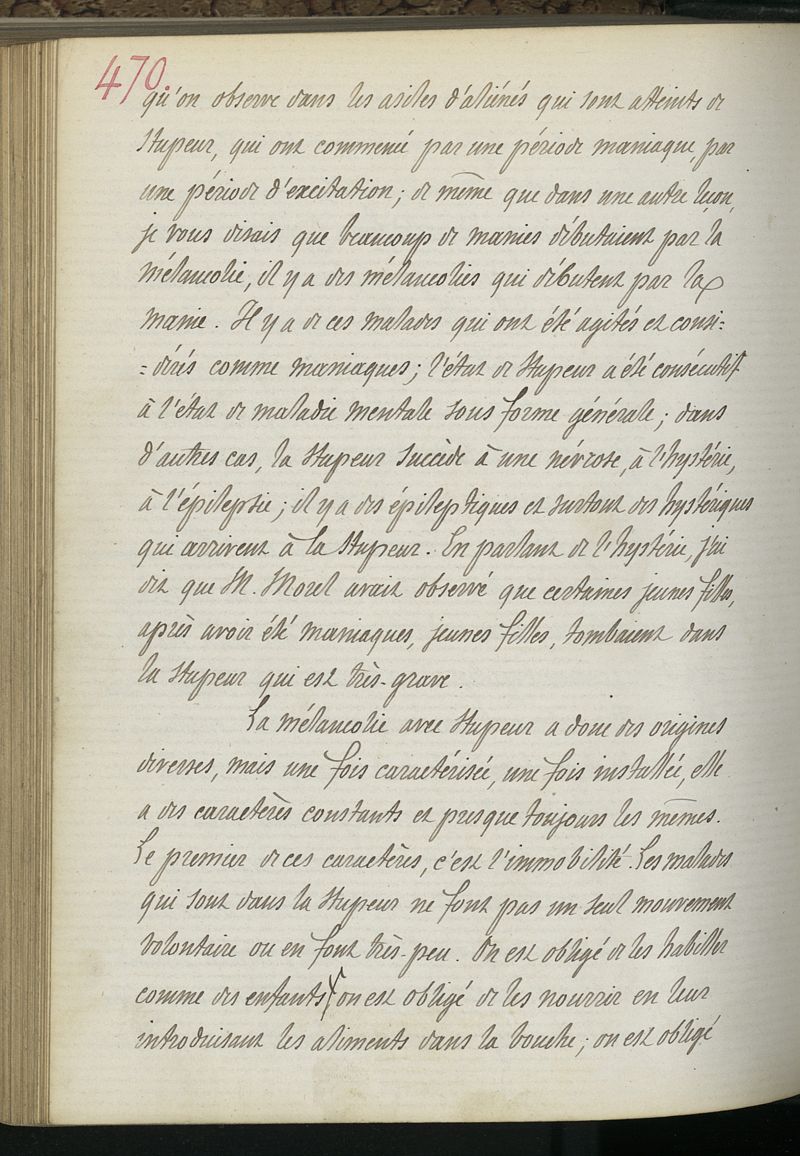 470.
qu'on observe dans les asiles d'aliénés qui sont atteints de
stupeur, qui ont commencé par une période maniaque, par
une période d'excitation; de même que dans une autre leçon,
je vous disais que beaucoup de manies débutaient par la
mélancolie, il y a des mélancolies qui débutent par la
manie. Il y a de ces malades qui ont été agités et consi=
=dérés comme maniaques; l'état de stupeur a été consécutif
à l'état de maladie mentale sous forme générale; dans
d'autres cas, la stupeur succède à une névrose, à l'hystérie,
à l'épilepsie; il y a des épileptiques et surtout des hystériques
qui arrivent à la stupeur. En parlant de l'hystérie, j'ai
dit que M. Morel avait observé que certaines jeunes filles,
après avoir été maniaques, jeunes filles, tombaient dans
la stupeur qui est très-grave.
La mélancolie avec stupeur a donc des origines
diverses, mais une fois caractérisée, une fois installée, elle
a des caractères constants et presque toujours les mêmes.
Le premier de ces caractères, c'est l'immobilité. Les malades
qui sont dans la stupeur ne font pas un seul mouvement
volontaire ou en font très-peu. On est obligé de les habiller
comme des enfants, on est obligé de les nourrir en leur
introduisant les aliments dans la bouche; on est obligé